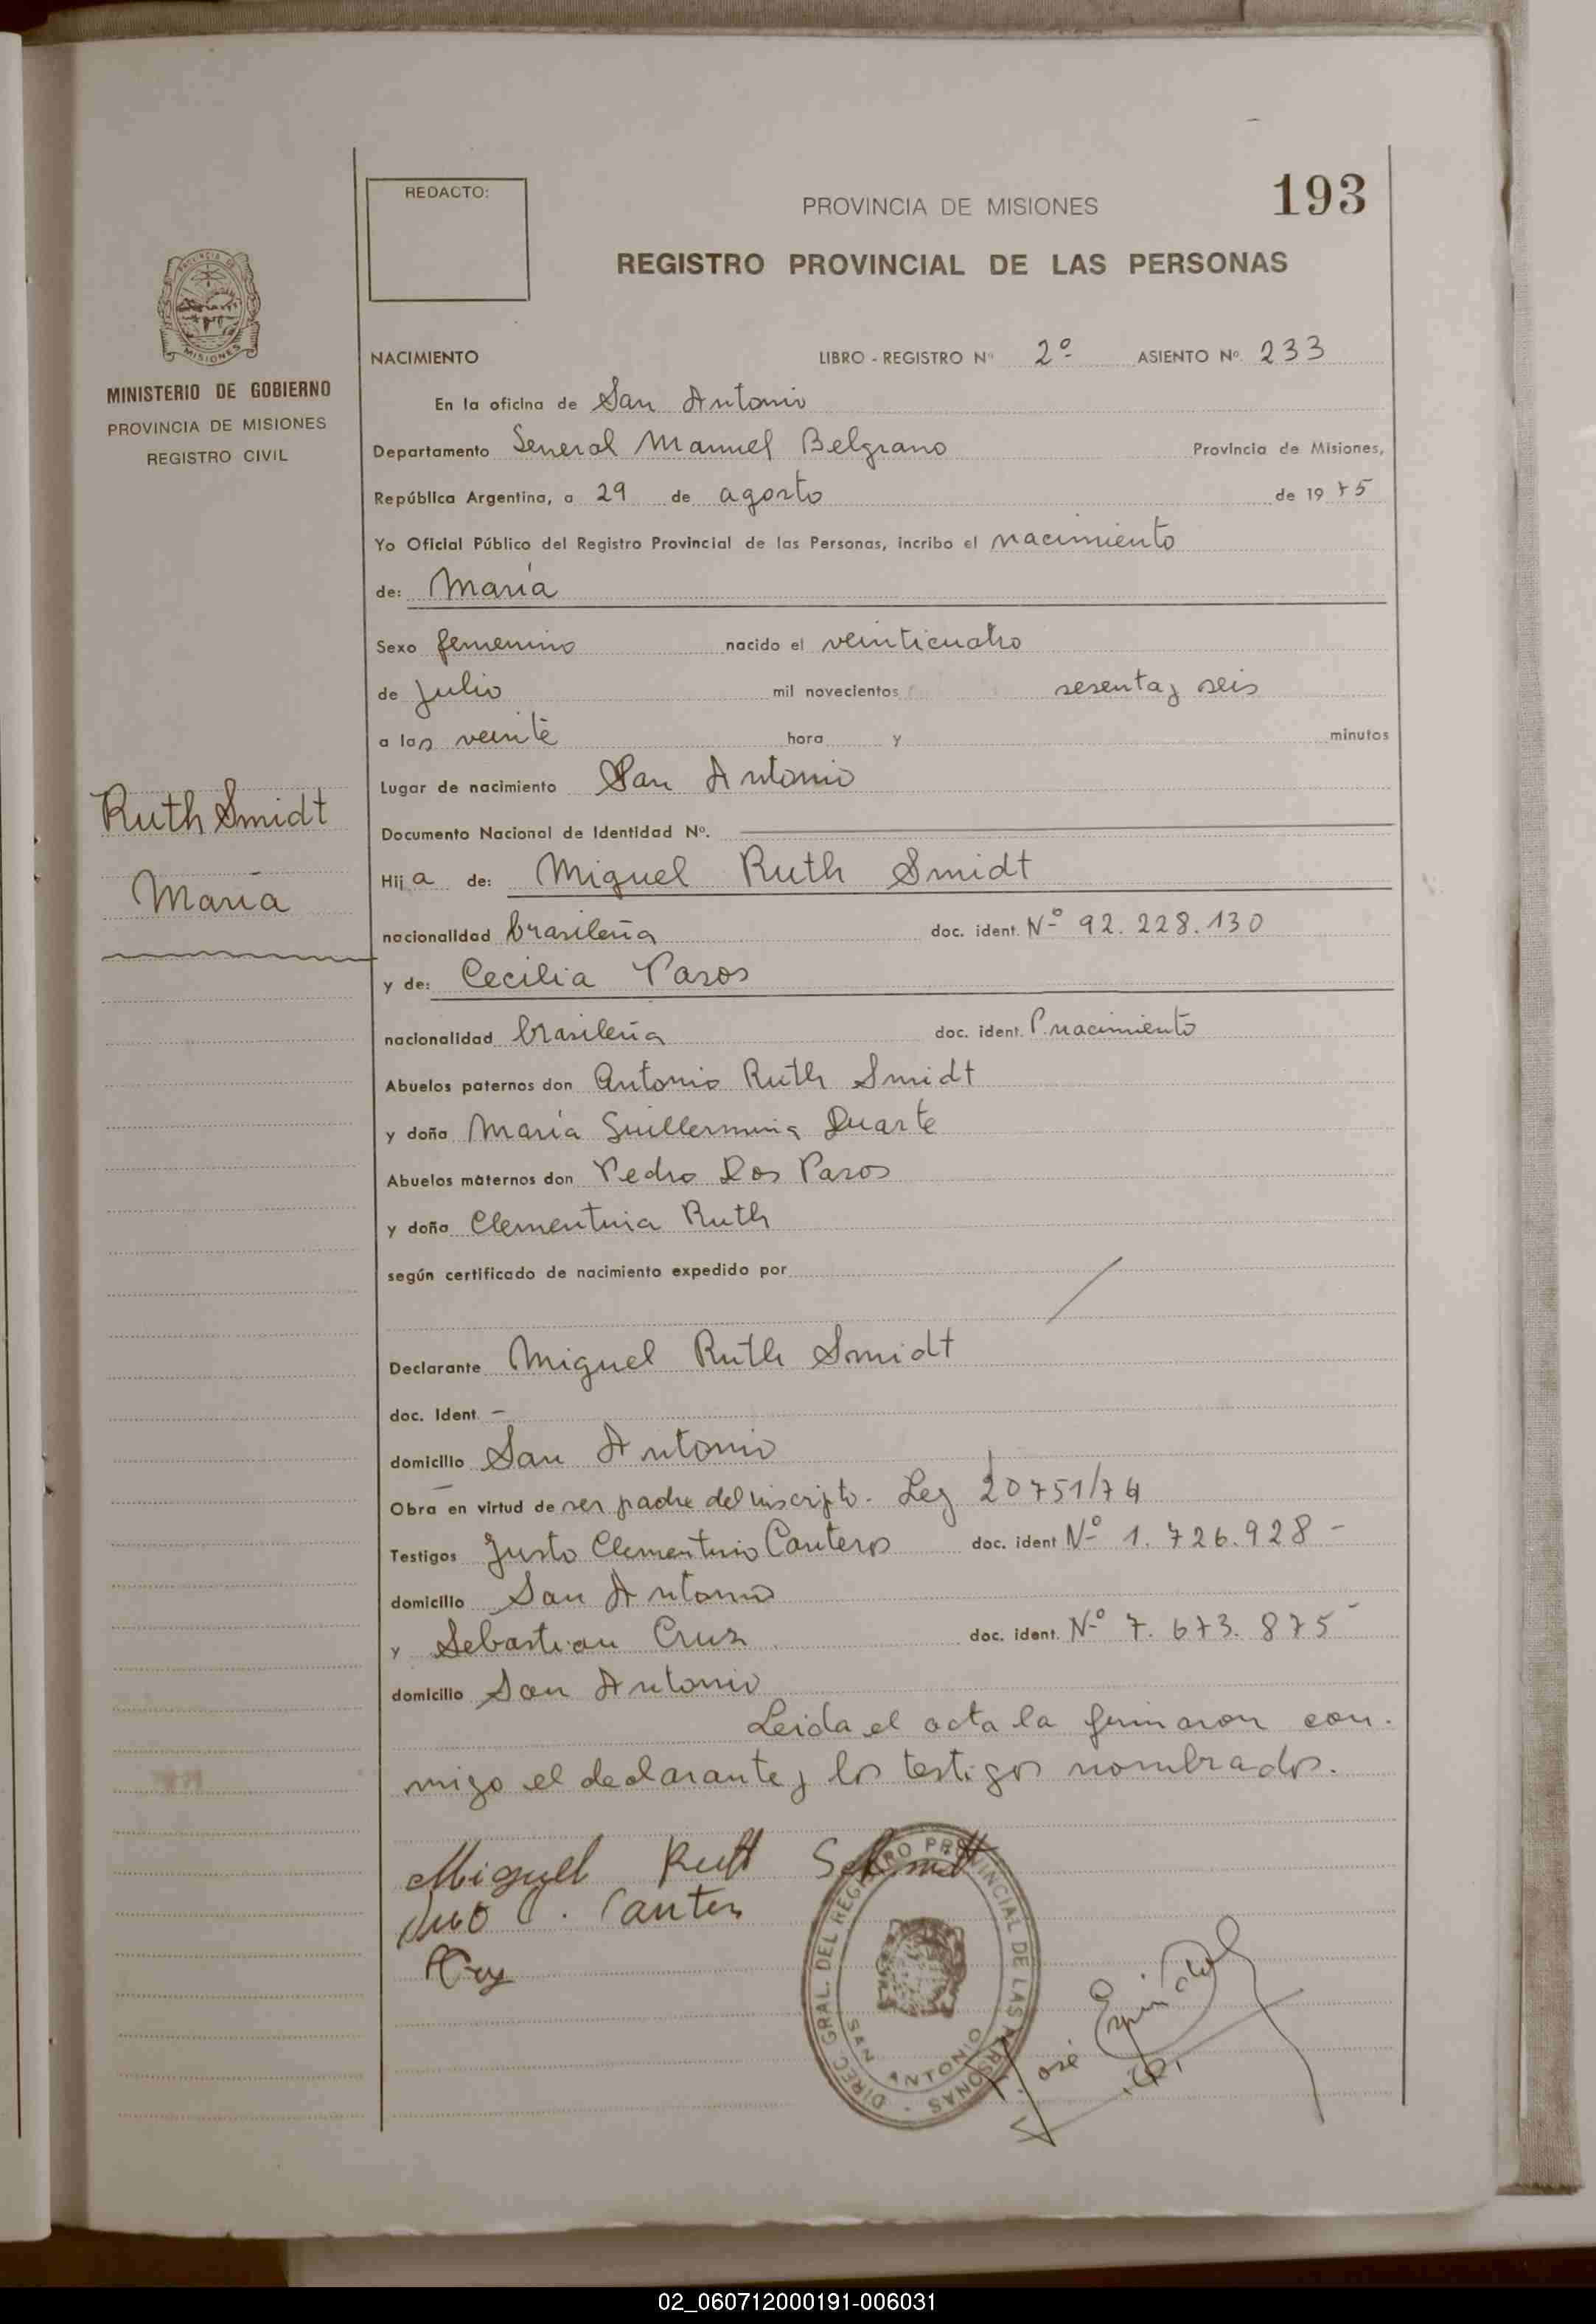 REDACTO:
PROVINCIA DE MISIONES
193
REGISTRO PROVINCIAL DE LAS PERSONAS
PROVINCIA DE
MISIONES
MINISTERIO DE GOBIERNO
PROVINCIA DE MISIONES
REGISTRO CIVIL
Ruth Smidt
María
NACIMIENTO LIBRO - REGISTRO Nº 2º ASIENTO Nº 233
En la oficina de San Antonio
Departamento General Manuel Belgrano Provincia de Misiones,
República Argentina, a 29 de agosto de 1975
Yo Oficial Público del Registro Provincial de las Personas, incribo el nacimiento
de: María
Sexo femenino nacido el veinticuatro
de Julio mil novecientos sesenta y seis
a las veinte hora y minutos
Lugar de nacimiento San Antonio
Documento Nacional de Identidad Nº.
Hija de: Miguel Ruth Smidt
nacionalidad brasileña doc. ident. Nº 92.228.130
y de: Cecilia Pasos
nacionalidad brasileña doc. ident. P. nacimiento
Abuelos paternos don Antonio Ruth Smidt
y doña María Guillermina Duarte
Abuelos maternos don Pedro Dos Pasos
y doña Clementina Ruth
según certificado de nacimiento expedido por
Declarante Miguel Ruth Smidt
doc. Ident. -
domicilio San Antonio
Obra en virtud de ser padre del inscripto. Ley 20751/74
Testigos Justo Clementino Cantero doc. ident Nº 1.726.928 -
domicilio San Antonio
y Sebastian Cruz doc. ident. Nº 7.673.875 -
domicilio San Antonio
Leida el acta la firmaron con-
migo el declarante y los testigos nombrados.
Miguel Ruth Schmidt
DIREC. GRAL. DEL REGISTRO PROVINCIAL DE LAS PERSONAS -
SAN ANTONIO
02_060712000191-006031